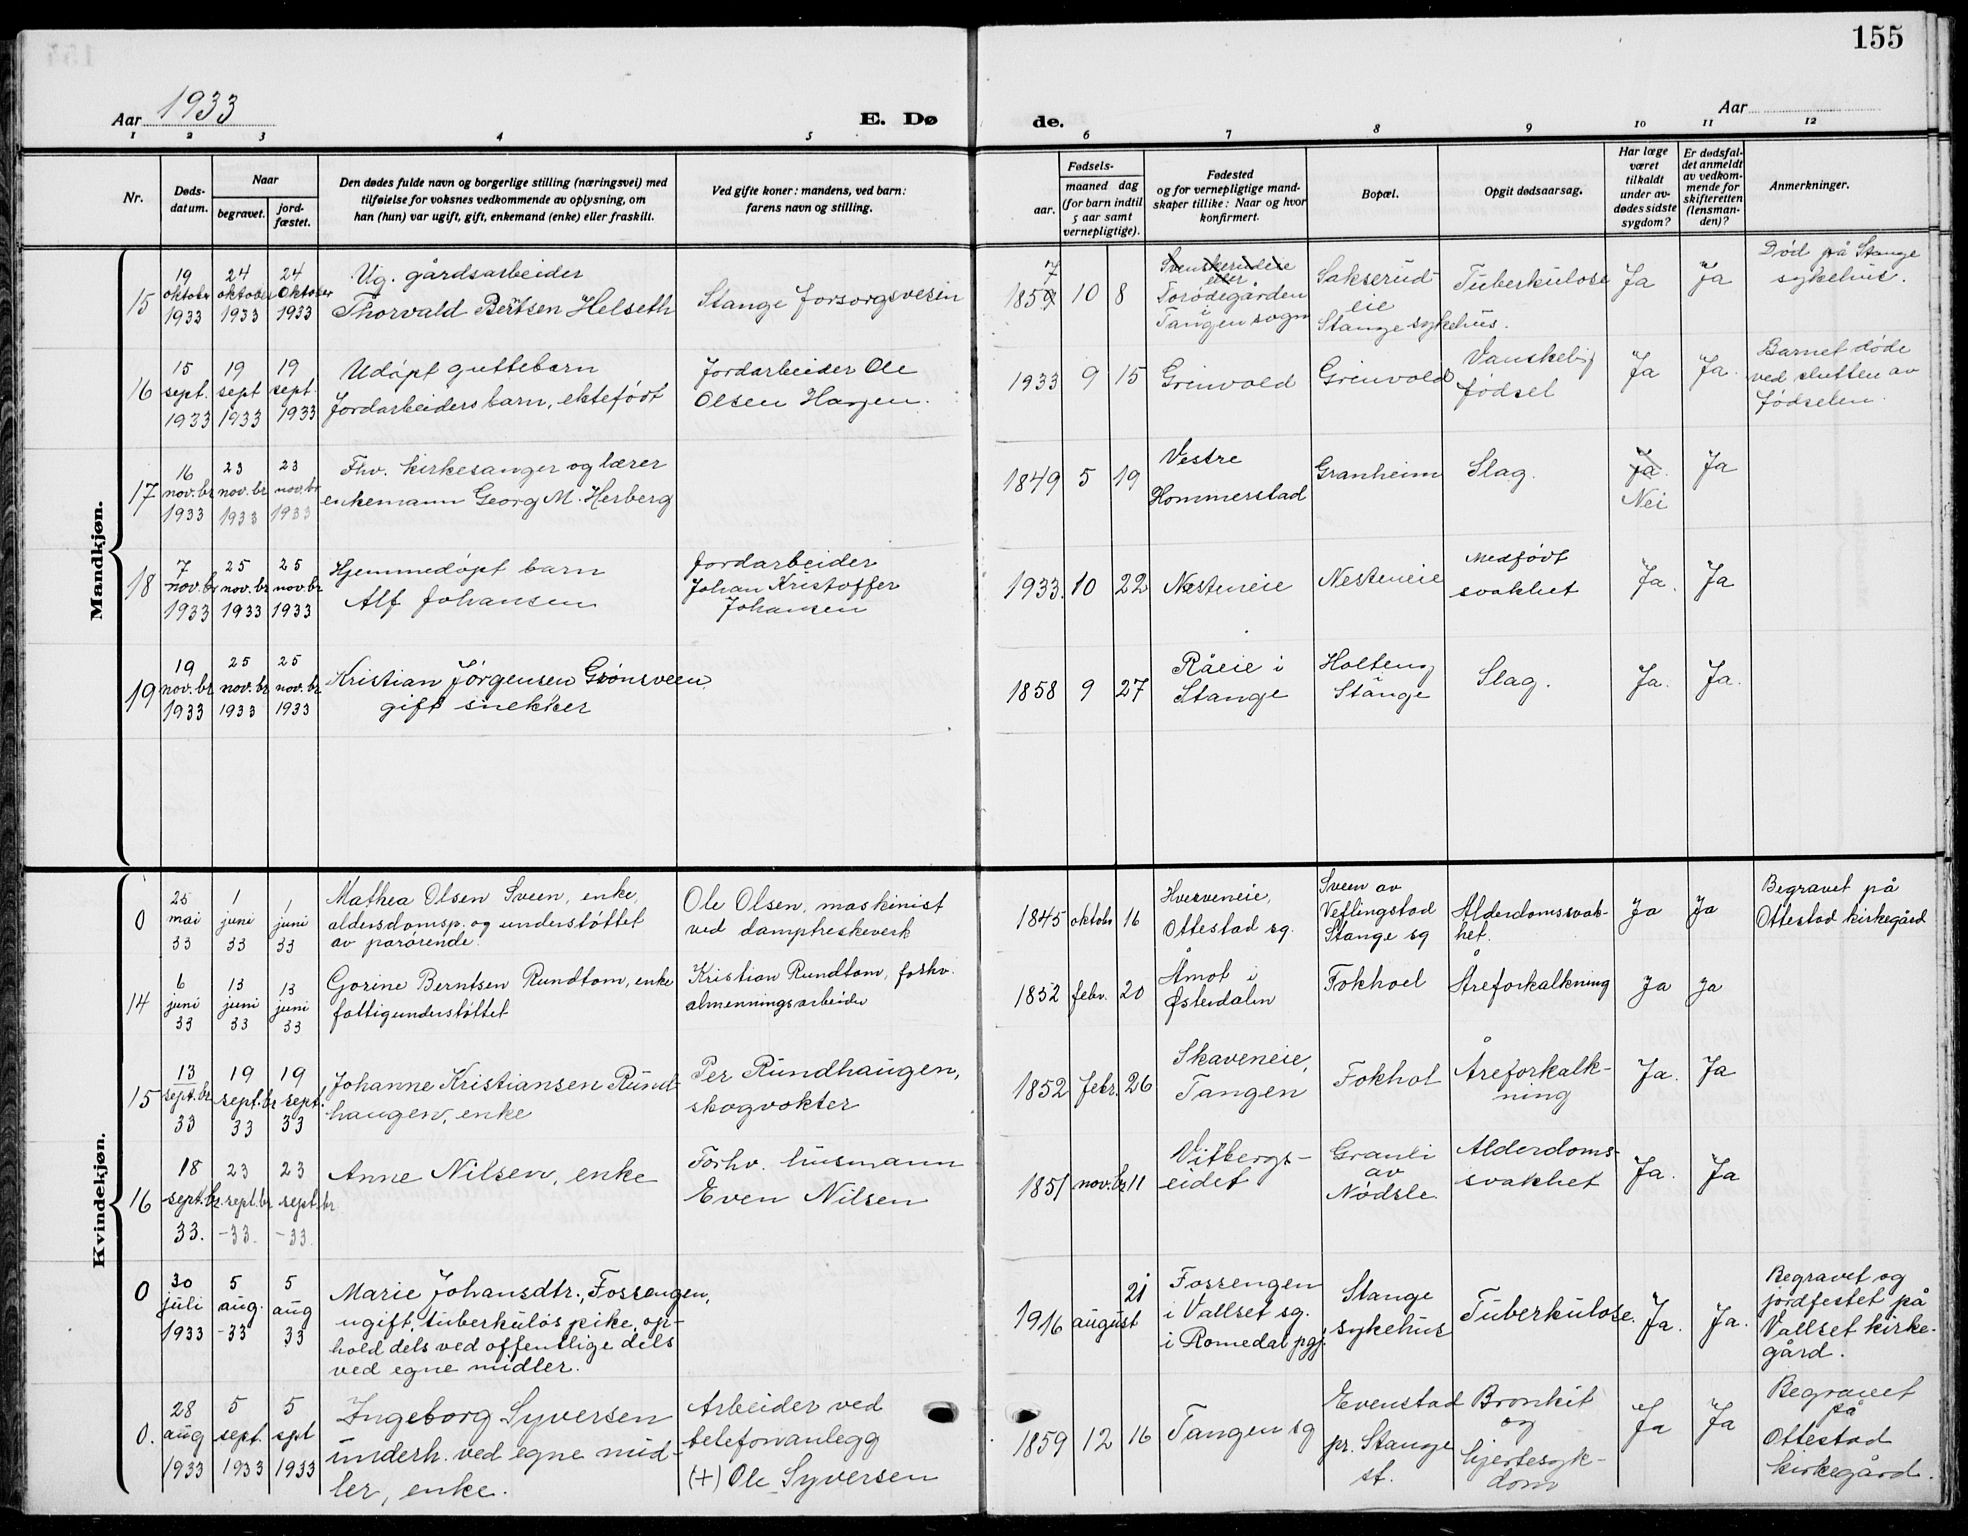 155
Aar 1933
E. Dø
de.
Aar
1 2 3 4 5 6 7 8 9 10 11 12
Nr.
Døds-
datum.
Naar
begravet.
jord-
fæstet.
Den dødes fulde navn og borgerlige stilling (næringsvei) med
tilføielse for voksnes vedkommende av oplysning, om
han (hun) var ugift, gift, enkemand (enke) eller fraskilt.
Ved gifte koner: mandens, ved barn:
farens navn og stilling.
Fødsels-
aar.
maaned dag
(for barn indtil
5 aar samt
vernepligtige).
Fødested
og for vernepligtige mand-
skaper tillike: Naar og hvor
konfirmert.
Bopæl.
Opgit dødsaarsag.
Har læge
været
tilkaldt
under av-
dødes sidste
sygdom?
Er dødsfal-
det anmeldt
av vedkom-
mende for
skifteretten
(lensman-
den)?
Anmerkninger.
Mandkjøn.
15
19
oktober
1933
24
oktober
1933
24
Oktober
1933
Ug. gårdsarbeider
Thorvald Berntsen Helseth
Stange forsorgsvesen
7
1859 10 8
Svenskerudeie
eller
Torødegården
i
Tangen sogn
Sakserud
eie
Stange sykehus.
Tuberkulose
Ja
Ja
Død på Stange
sykehus.
16
15
sept.
1933
19
sept
1933
19
sept.
1933
Udøpt guttebarn
Jordarbeiders barn, ektefødt
Jordarbeider Ole
Olsen Hagen.
1933 9 15
Grinvold
Grinvold
Vanskelig
fødsel
Ja
Ja.
Barnet døde
ved slutten av
fødselen.
17
16
nov.br
1933
23
nov.br
1933
23
nov.br
1933
Fhv. kirkesanger og lærer
enkemann Georg M. Herberg
1849 5 19
Vestre
Hommerstad
Granheim
Slag.
Ja.
Nei
Ja
18
7
nov.br
1933
25
nov.br
1933
25
nov.br
1933
Hjemmedøpt barn
Alf Johansen
Jordarbeider
Johan Kristoffer
Johansen
1933. 10 22
Nesteneie
Nesteneie
Medfødt
svakhet
Ja.
Ja
19
19
nov.br
1933
25
nov.br
1933
25
nov.br
1933
Kristian Jørgensen Grønsveen
gift snekker
1858 9 27
Råeie i
Stange
Holteng
Stange
Slag.
Ja.
Ja.
Kvindekjøn.
0
25
mai
33
1
juni
33
1
juni
33
Mathea Olsen Sveen, enke,
aldersdomsp. og understøttet
av pårørende.
Ole Olsen, maskinist
ved damptreskeverk
1845 oktobr 16
Hverveneie,
Ottestad sg.
Sveen av
Veflingstad
Stange sg
Alderdomssvak-
het.
Ja
Ja
Begravet på
Ottestad kirkegård
14
6
juni
33
13
juni
33
13
juni
33
Gorine Berntsen Rundtom, enke
fattigunderstøttet
Kristian Rundtom, forhv.
almenningsarbeider
1852 febr. 20
Åmot i
Østerdalen
Fokhoel
Åreforkalkning
Ja
Ja
15
13
sept.br
33
19
sept.br
33
19
sept.
33
Johanne Kristiansen Rund-
haugen, enke
Per Rundhaugen,
skogvokter
1852 febr. 26
Skaveneie,
Tangen
Fokhol
Åreforkalk-
ning
Ja.
Ja
16
18
sept.br.
33.
23
sept.br
-33.
23
sept.br
-33.
Anne Nilsen, enke
Forhv. husmann
Even Nilsen
1851 nov.br 11
Vitbergs-
eidet
Granli
av
Nødsle
Alderdoms-
svakhet
Ja.
Ja
0
30
juli
1933
5
aug.
-33
5
aug
33
Marie Johansdtr., Fossengen,
ugift, tuberkuløs pike, op-
hold dels ved offentlige dels
ved egne midler.
1916 august 21
Fossengen
i Vallset sg.
i Romedal pgj.
Stange
sykehus
Tuberkulose.
Ja.
Ja.
Begravet og
jordfestet på
Vallset kirke-
gård.
0.
28
aug
1933
5
sept.
1933
5
spt
1933
Ingeborg Syversen
underh. ved egne mid-
ler, enke.
Arbeider ved
telefonanlegg
(+) Ole Syversen
1859 12 16
Tangen sg
Evenstad
pr. Stange
st.
Bronkit
og
hjertesyk-
dom
Ja
Ja
Begravet
på
Ottestad
kirkegård.